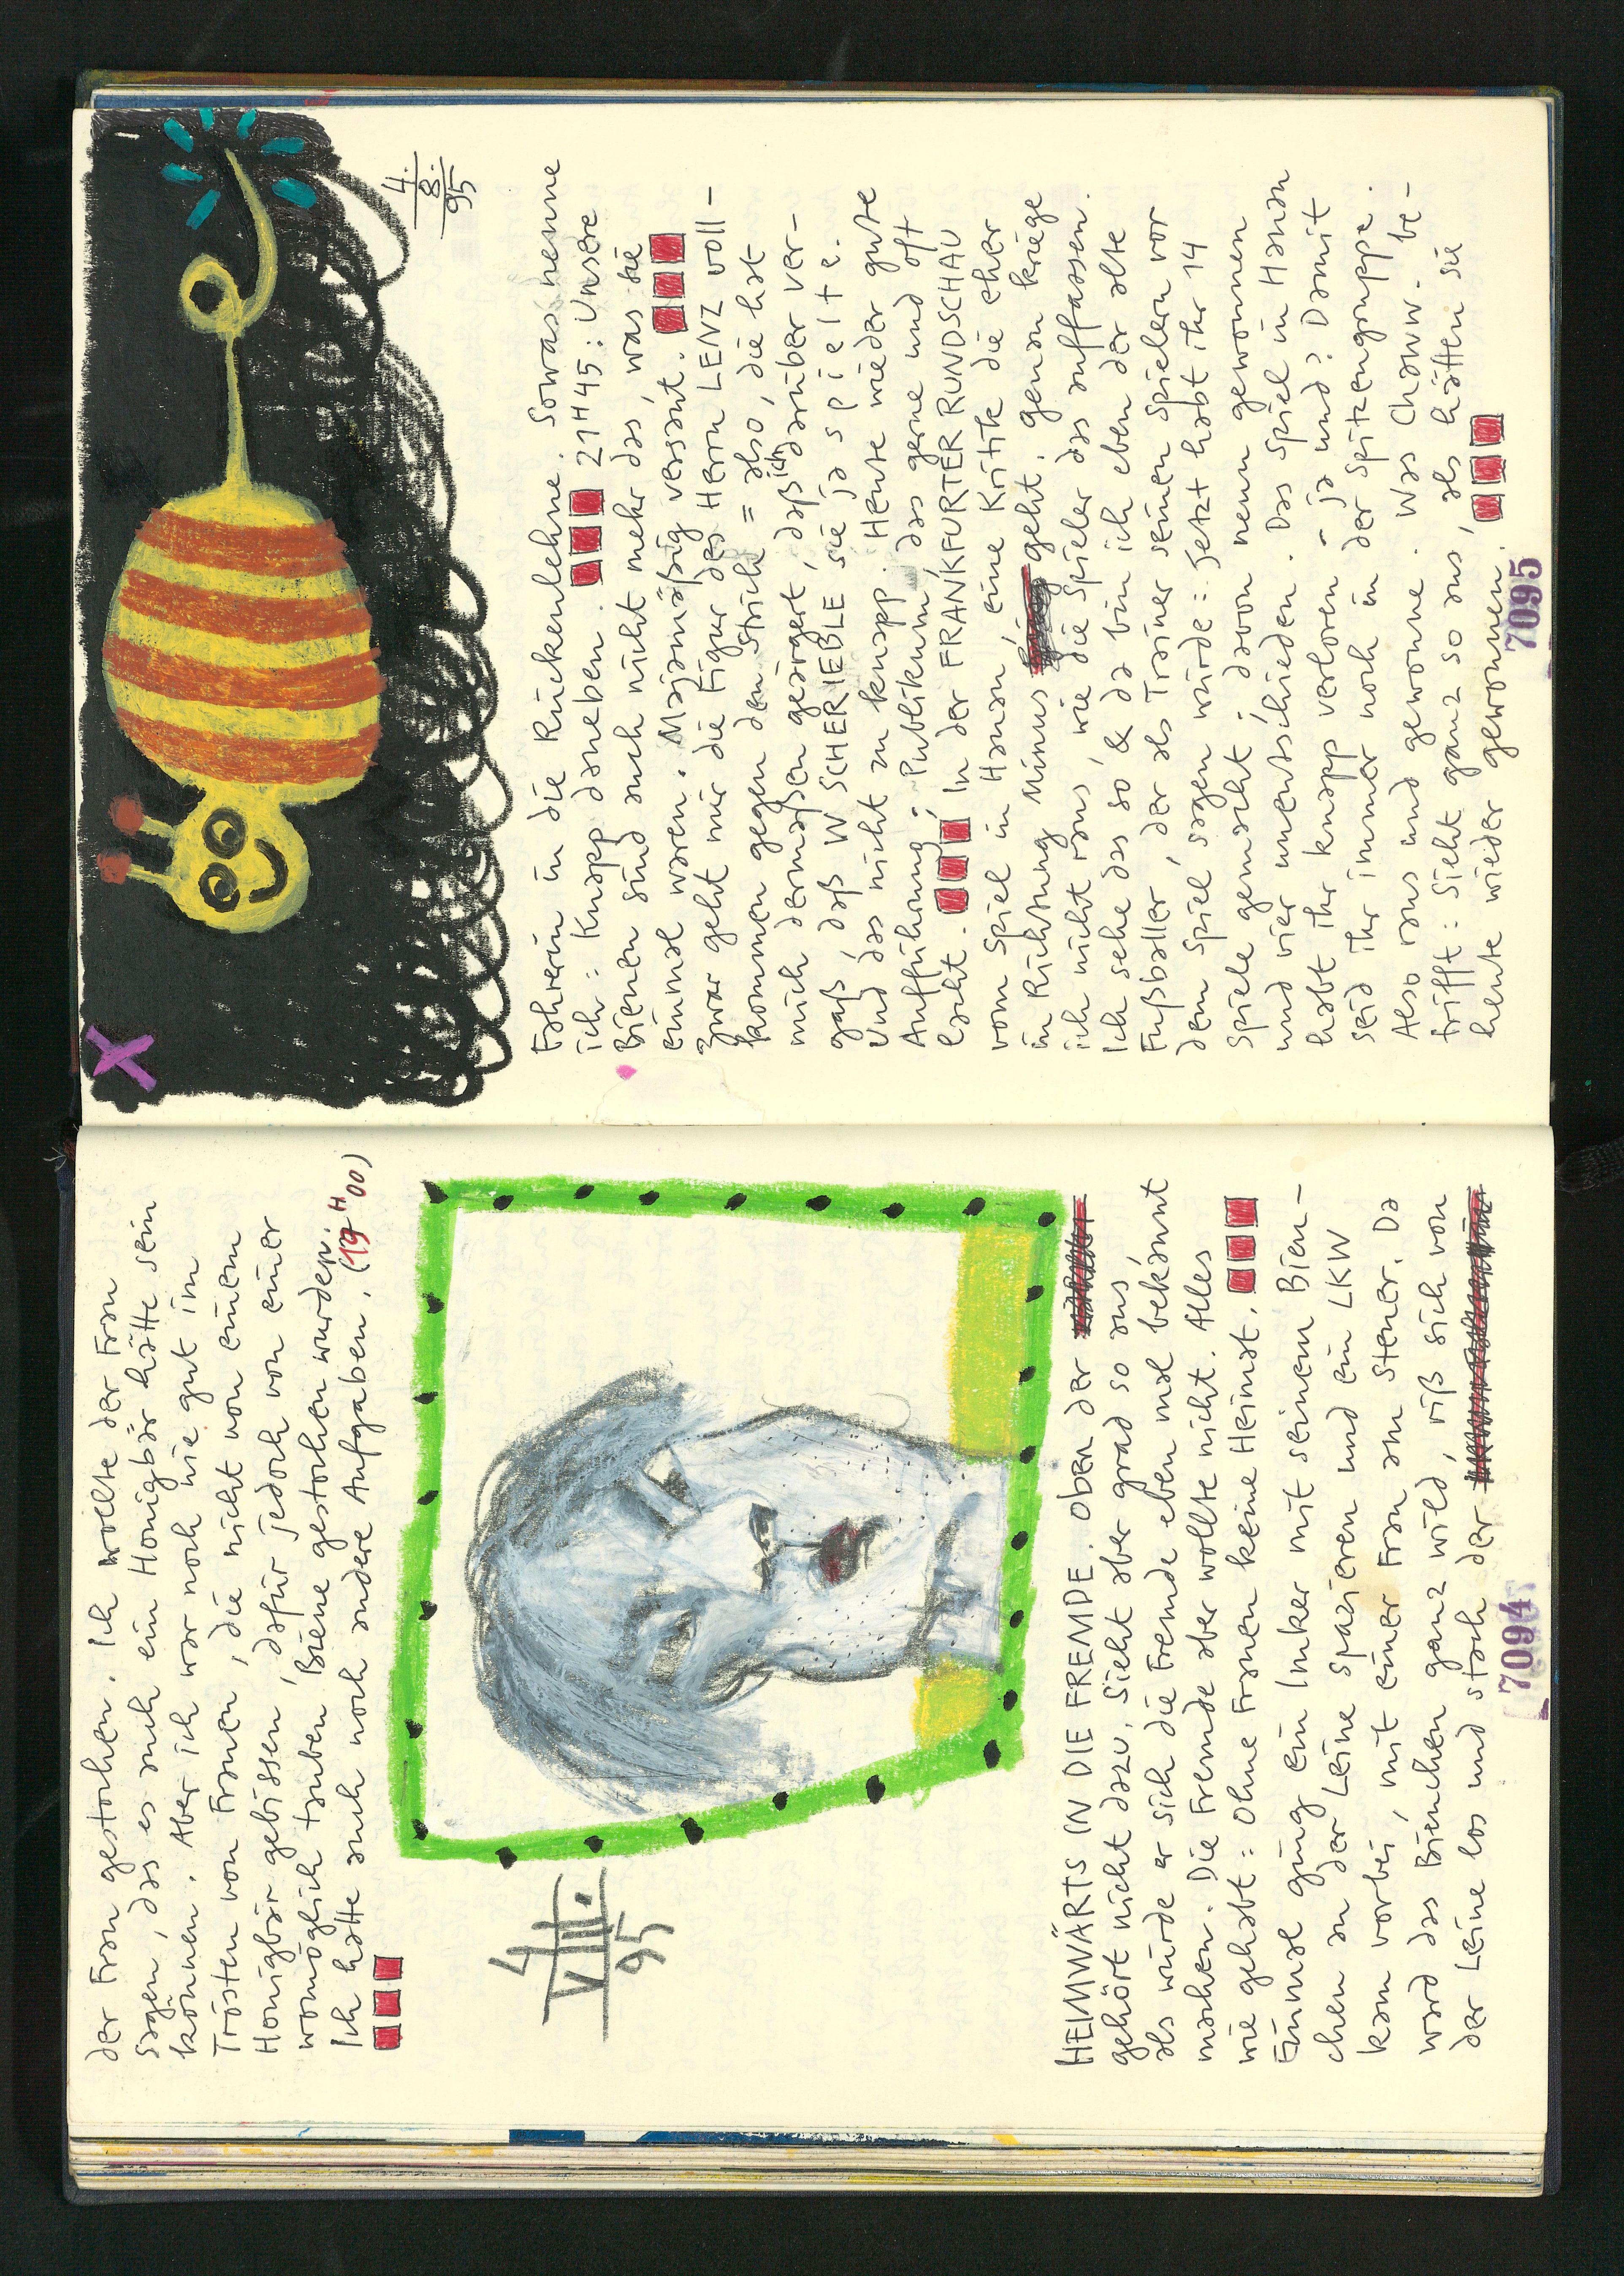 der Frau gestochen. Ich wollte der Frau
sagen, das es auch ein Honigbär hätte sein
können. Aber ich war noch nie gut im
Trösten von Frauen, die nicht von einem
Honigbär gebissen, dafür jedoch von einer
womöglich tauben Biene gestochen wurden.
Ich hatte auch noch andere Aufgaben. (19H00)
4
VIII.
95
HEIMWÄRTS IN DIE FREMDE. Oben der
gehört nicht dazu. Sieht aber grad so aus,
als würde er sich die Fremde eben mal bekannt
machen. Die Fremde aber wollte nicht. Alles
wie gehabt: Ohne Frauen keine Heimat.
Einmal ging ein Imker mit seinem Bien-
chen an der Leine spazieren und ein LKW
kam vorbei, mit einer Frau am Steuer. Da
ward das Bienchen ganz wild, riß sich von
der Leine los und stach der
7094
4.
8.
95
Fahrerin in die Rückenlehne. Sowas nenne
ich: Knapp daneben. 21H45: Unsere
Bienen sind auch nicht mehr das, was sie
einmal waren. Majamäßig versaut.
Zwar geht mir die Figur des Herrn LENZ voll-
kommen gegen den Strich = also, die hat
mich dermaßen geärgert, daß ich darüber ver-
gaß, daß W SCHERIEBLE sie ja s p i e l t e.
Und das nicht zu knapp. Heute wieder gute
Aufführung; Publikum, das gerne und oft
lacht. In der FRANKFURTER RUNDSCHAU
vom Spiel in Hanau, eine Kritik die eher
in Richtung Minus geht, genau kriege
ich nicht raus, wie die Spieler das auffassen.
Ich sehe das so, & da bin ich eben der alte
Fußballer, der als Trainer seinen Spielern vor
dem Spiel, sagen würde: Jetzt habt ihr 14
Spiele gemacht; davon neun gewonnen
und vier unentschieden. Das Spiel in Hanau
habt ihr knapp verloren - ja und? Damit
seid ihr immer noch in der Spitzengruppe.
Also raus und gewonne. Was Chaww. be-
trifft: Sieht ganz so aus, als hätten sie
heute wieder gewonnen.
7095